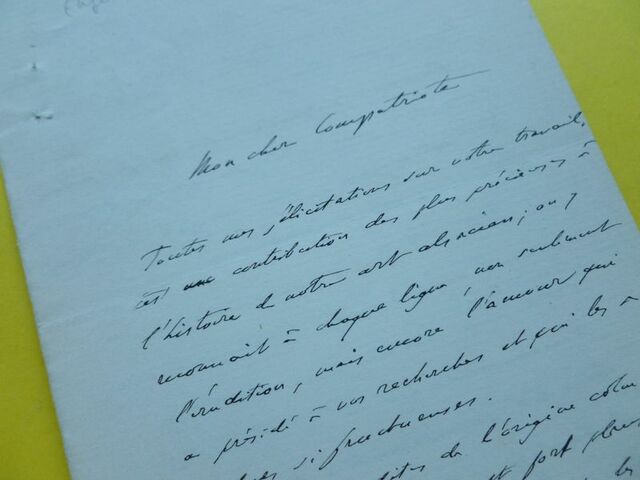 Mon cher Compatriote
Toutes mes félicitations sur votre travail,
c'est une contribution des plus précieuses à
l'histoire de notre art alsacien; on y
reconnait à chaque ligne, non seulement
l'érudition, mais encore l'amour qui
a présidé à vos recherches et qui les a
si fructueuses.
de l'origine
et fort